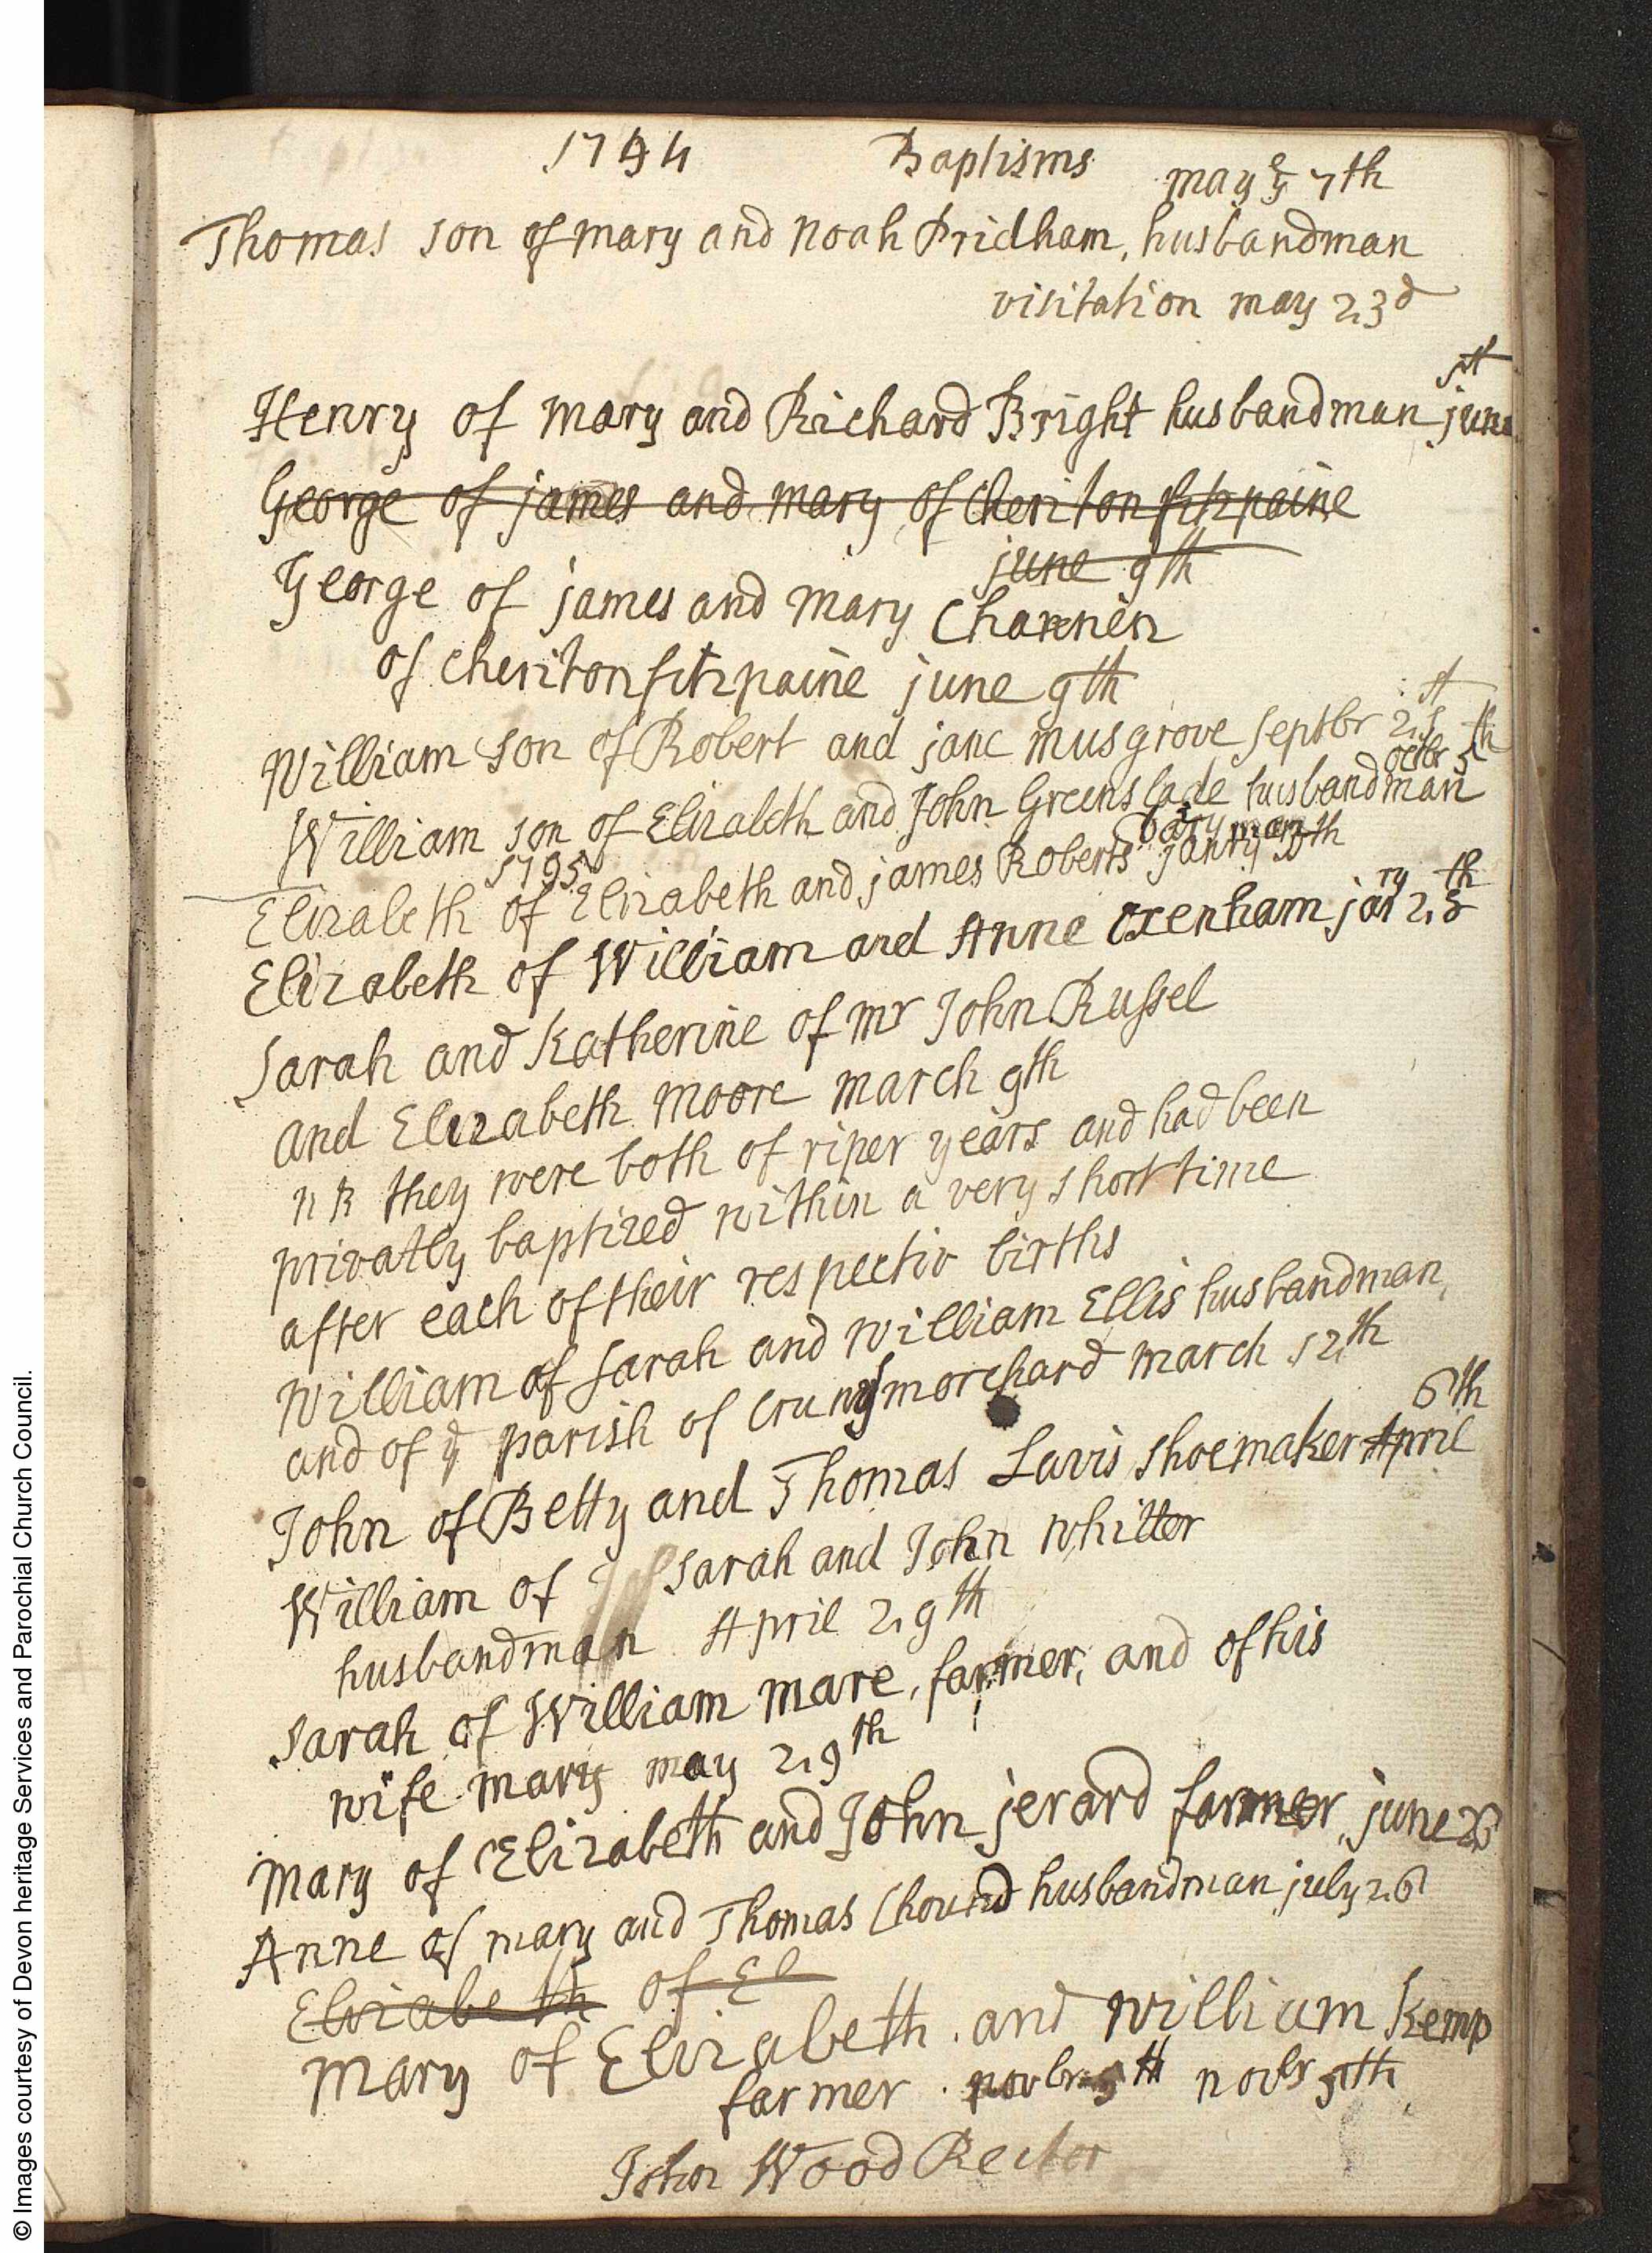 1794 Baptisms may ye 7th
Thomas son of mary and noah Pridham, husbandman
visitation may 23d
Henry of mary and Richard Bright husbandman june 1st
George of james and mary of Cheriton fitzpaine
june 9th
George of james and mary
of cheriton fitzpaine june 9th
William son of Robert and jane musgrove septbr 21st
octbr 5th
William son of Elizabeth and John Greenslade husbandman
1795
Elizabeth of Elizabeth and james Roberts janry
Elizabeth of William and Anne Oxenham janry 25th
Sarah and Katherine of mr John Russel
and Elizabeth moore march 9th
n B they were both of riper years and had been
privatly baptized within a very short time
after each of their respectiv births
William of Sarah and William Ellis husbandman,
and of ye parish of morchard march 12th
John of Betty and Thomas Lavis shoemaker April 6th
William of Sarah and John Whitter
husbandman April 29th
Sarah of William mare, farmer, and of his
wife mary may 29th
Mary of Elizabeth and John jerard farmer, june
Anne of mary and Thomas Chound husbandman july 26
Elizabeth of El
Mary of Elizabeth and William Kemp
farmer. novbr 5th novbr 5th
John Wood Rector
© Images courtesy of Devon heritage Services and Parochial Church Council.